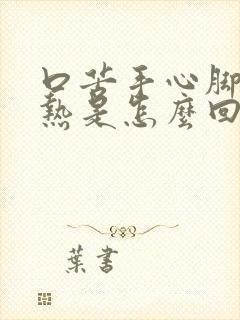 口苦手心脚
热是怎麽回
葉書